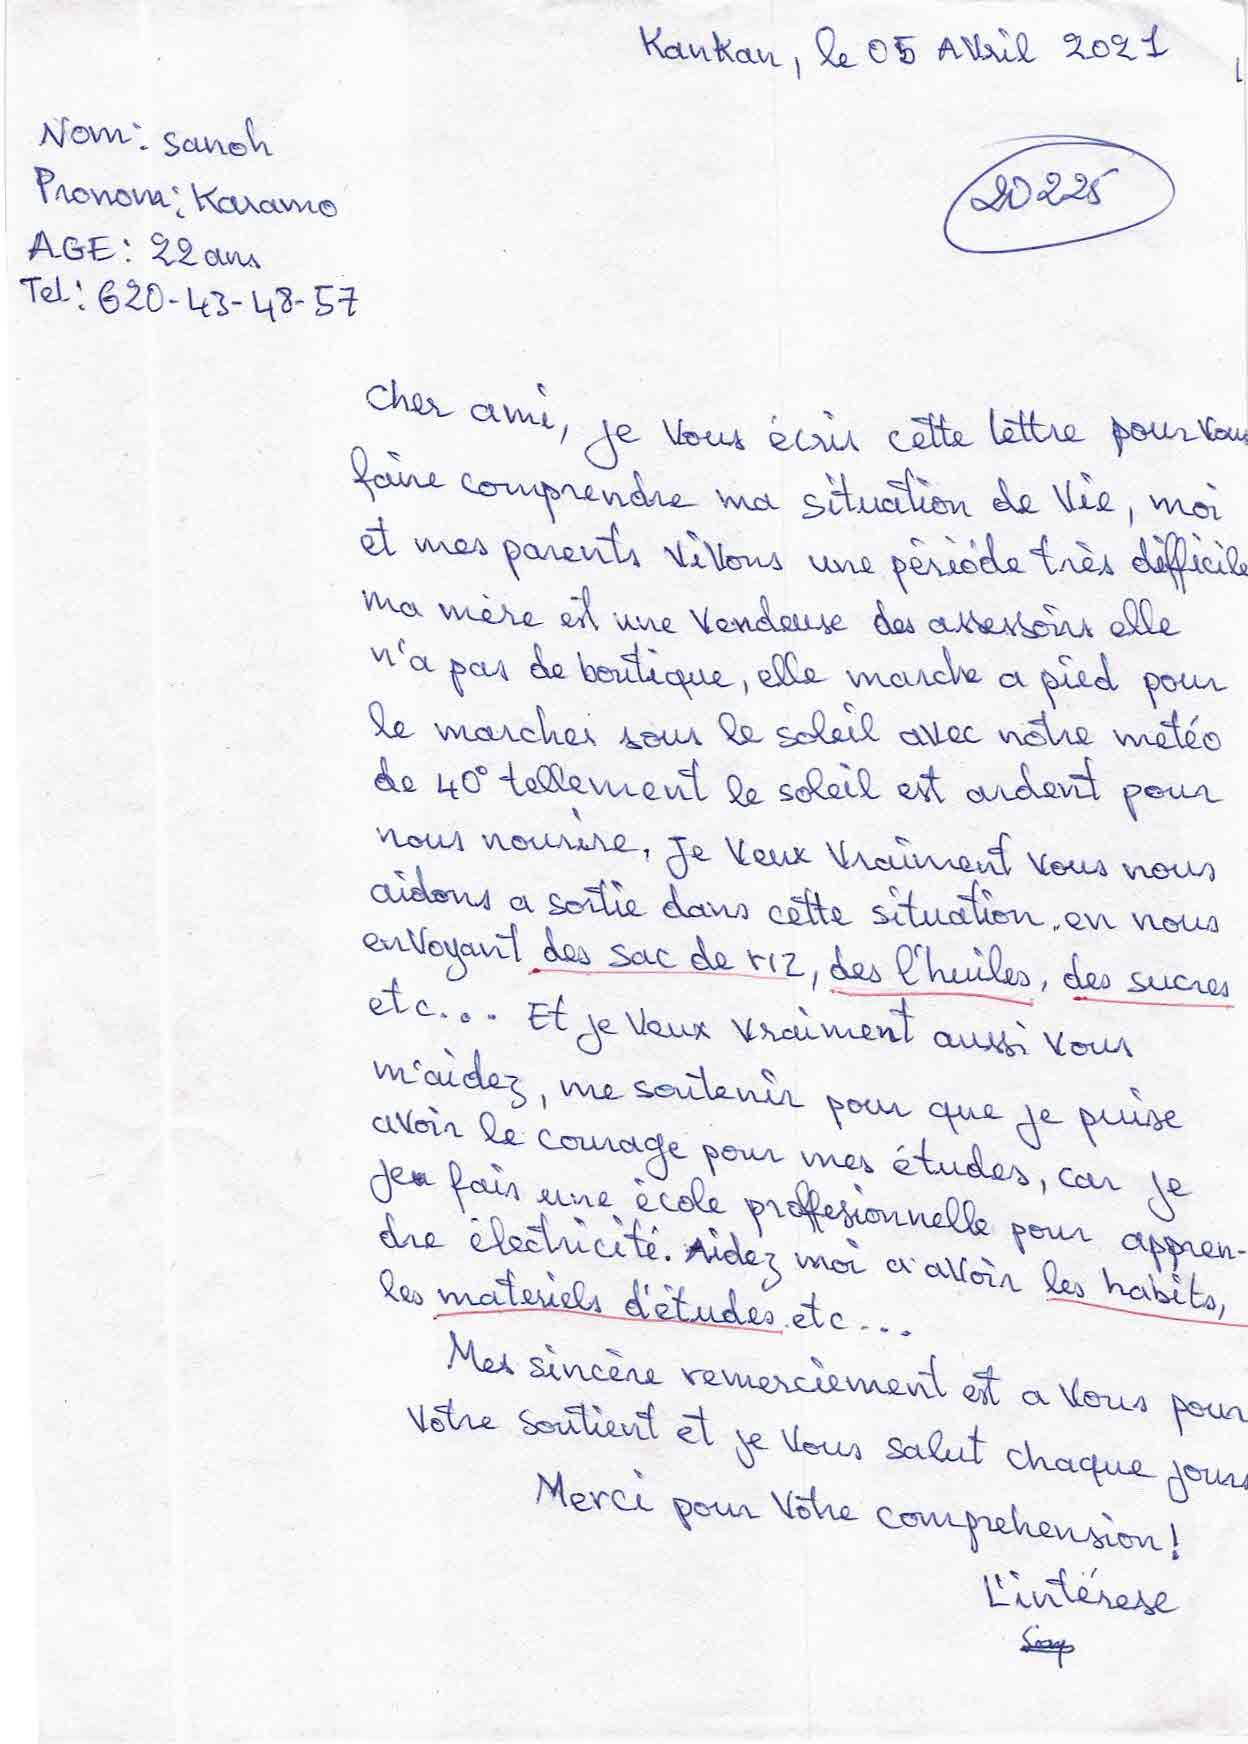 Kankan, le 05 AVril 2021
Nom: sanoh
Pronom: Karamo
AGE: 22 ans
Tel: 620-43-48-57
20225
cher ami, je Vous écris cette lettre pour Vous
faire comprendre ma situation de Vie, moi
et mes parents ViVons une période très difficile
ma mère est une Vendeuse des assessoirs elle
n'a pas de boutique, elle marche a pied pour
le marcher sous le soleil avec notre météo
de 40° tellement le soleil est ardent pour
nous nourire. Je Veux Vraiment Vous nous
aidons a sortie dans cette situation. en nous
enVoyant des sac de riz, des l'huiles, des sucres
etc... Et je Veux Vraiment aussi Vous
m'aidez, me soutenir pour que je puise
aVoir le courage pour mes études, car je
fais une école proffesionnelle pour appren-
dre électricité. Aidez moi a aVoir les habits,
les materiels d'études etc...
Mes sincère remerciement est a Vous pour
Votre soutient et je Vous salut chaque jours
Merci pour Votre comprehension!
L'intérese